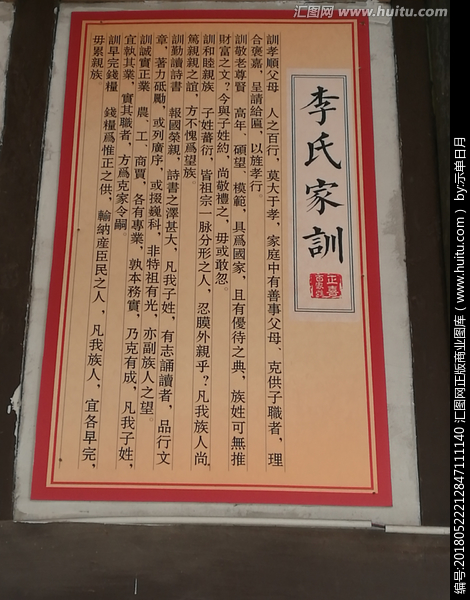 汇图网 www.huitu.com
李氏家訓
訓孝順父母　人之百行，莫大于孝，家庭中有善事父母，克供子職者，理
合褒嘉，呈請給匾，以旌孝行。
訓敬老尊賢　高年、碩望、模範，具爲國家，且有優待之典，族姓可無推
財富之文？今與子姓約，尚敬禮之，毋或敢忽。
訓和睦親族　子姓蕃衍，皆祖宗一脉分形之人，忍膜外親乎？凡我族人尚
篤親親之誼，方不愧爲望族。
訓勤讀詩書　報國榮親，詩書之澤甚大，凡我子姓，有志誦讀者，品行文
章，著力砥勵，或列廣序，或掇巍科，非特祖有光，亦副族人之望。
訓誠實正業　農、工、商賈，各有專業，孰本務實，乃克有成，凡我子姓，
宜執其業，實其職者，方爲克家令嗣。
訓早完錢糧　錢糧爲惟正之供，輸納産臣民之人，凡我族人，宜各早完，
毋累親族。
编号:20180522212847111140 汇图网正版商业图库( www.huitu.com ) by:示单日月